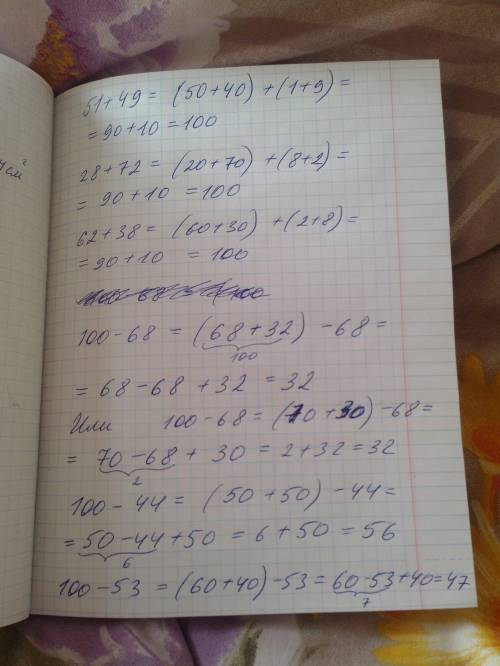 4 см²
51+49= (50+40) +(1+9)=
=90+10=100
28+72= (20+70) +(8+2)=
= 90+10 =100
62+38= (60+30) +(2+8)=
=90+10 =100
100-68 = (68+32) -68=
100
= 68-68 +32 =32
Или 100-68= (70+30)-68=
= 70-68+ 30 =2+32=32
2
100-44= (50+50)-44=
=50-44+50 =6+50 =56
6
100-53 =(60+40)-53=60-53+40=47
7